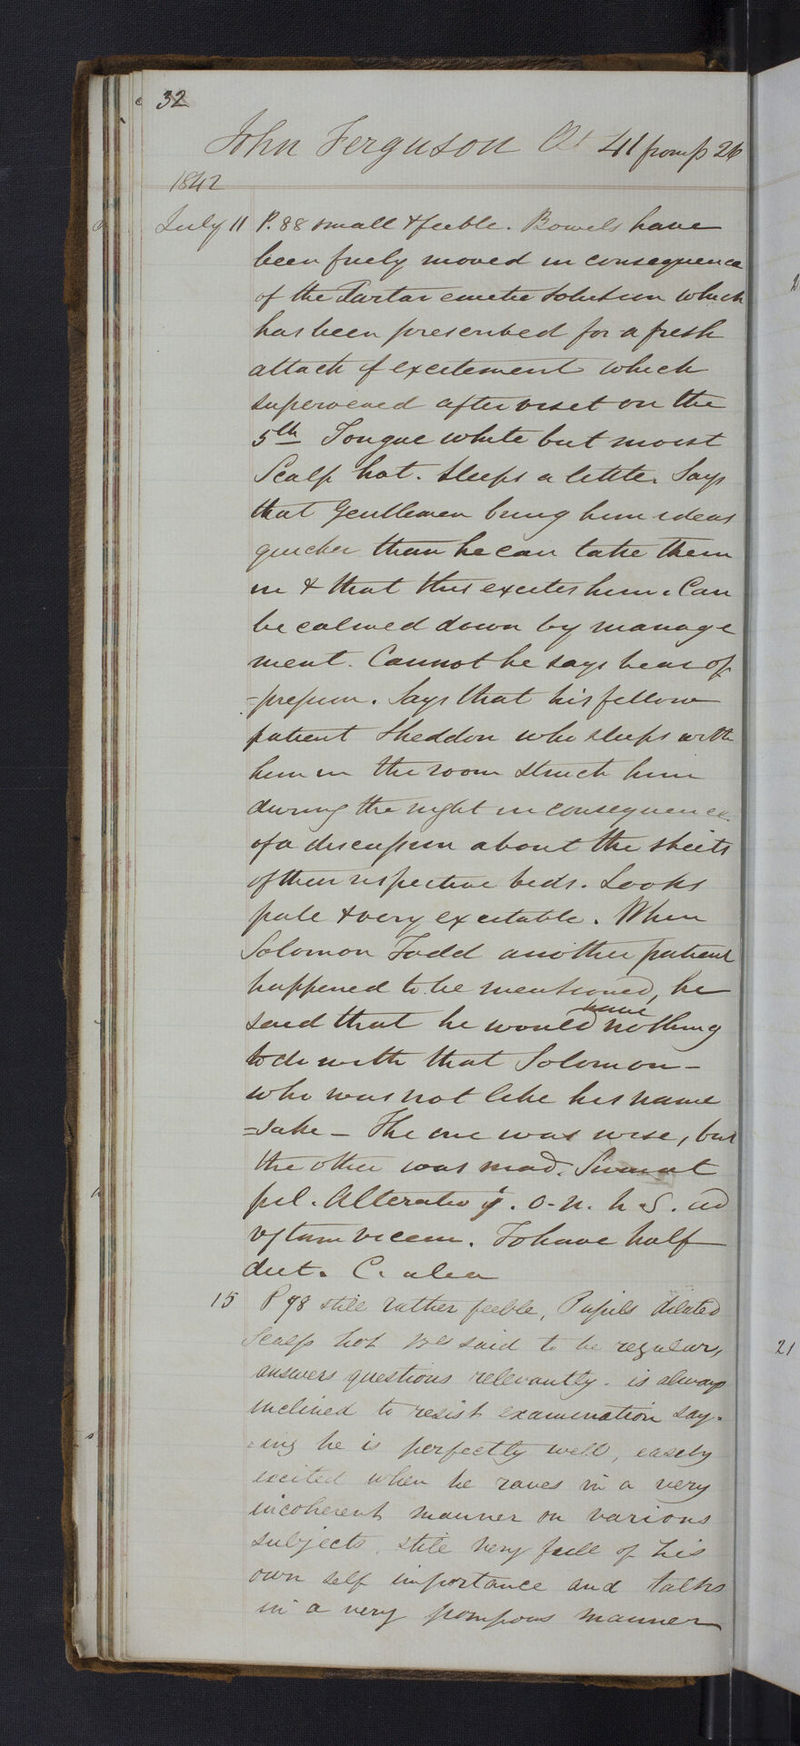 32
John Ferguson Æt 41 from p 26
1842
July 11 P. 88 small & feeble. Bowels have
been freely moved in consequence
of the Tartar emetic solution which
has been prescribed for a fresh
attack of excitement which
supervened after visit on the
5th Tongue white but moist
Scalp hot. Sleeps a little. Says
that Gentlemen bring him ideas
quicker than he can take them
in & that this excites him. Can
be calmed down by manage
ment. Cannot he says bear op
=pression. Says that his fellow
patient Sheddon who sleeps with
him in the room struck him
during the night in consequence
of a discussion about the sheets
of their respective beds. Looks
pale & very excitable. When
Solomon Todd another patient
happened to be mentioned, he
said that he would have nothing
to do with that Solomon -
who was not like his name
=sake - The one was wise, but
the other was mad. Sumat
pil. Alterativ j. o. n. h. S. ad
vj tam vicem. To have half
diet. C. alia
15 P 98 still rather feeble, Pupils dilated
Scalp hot Bls said to be regular,
answers questions relevantly. is always
inclined to resist examination say-
=ing he is perfectly well, easily
excited when he raves in a very
incoherent manner on various
subjects. still very full of his
own self importance and talks
in a very pompous manner
21